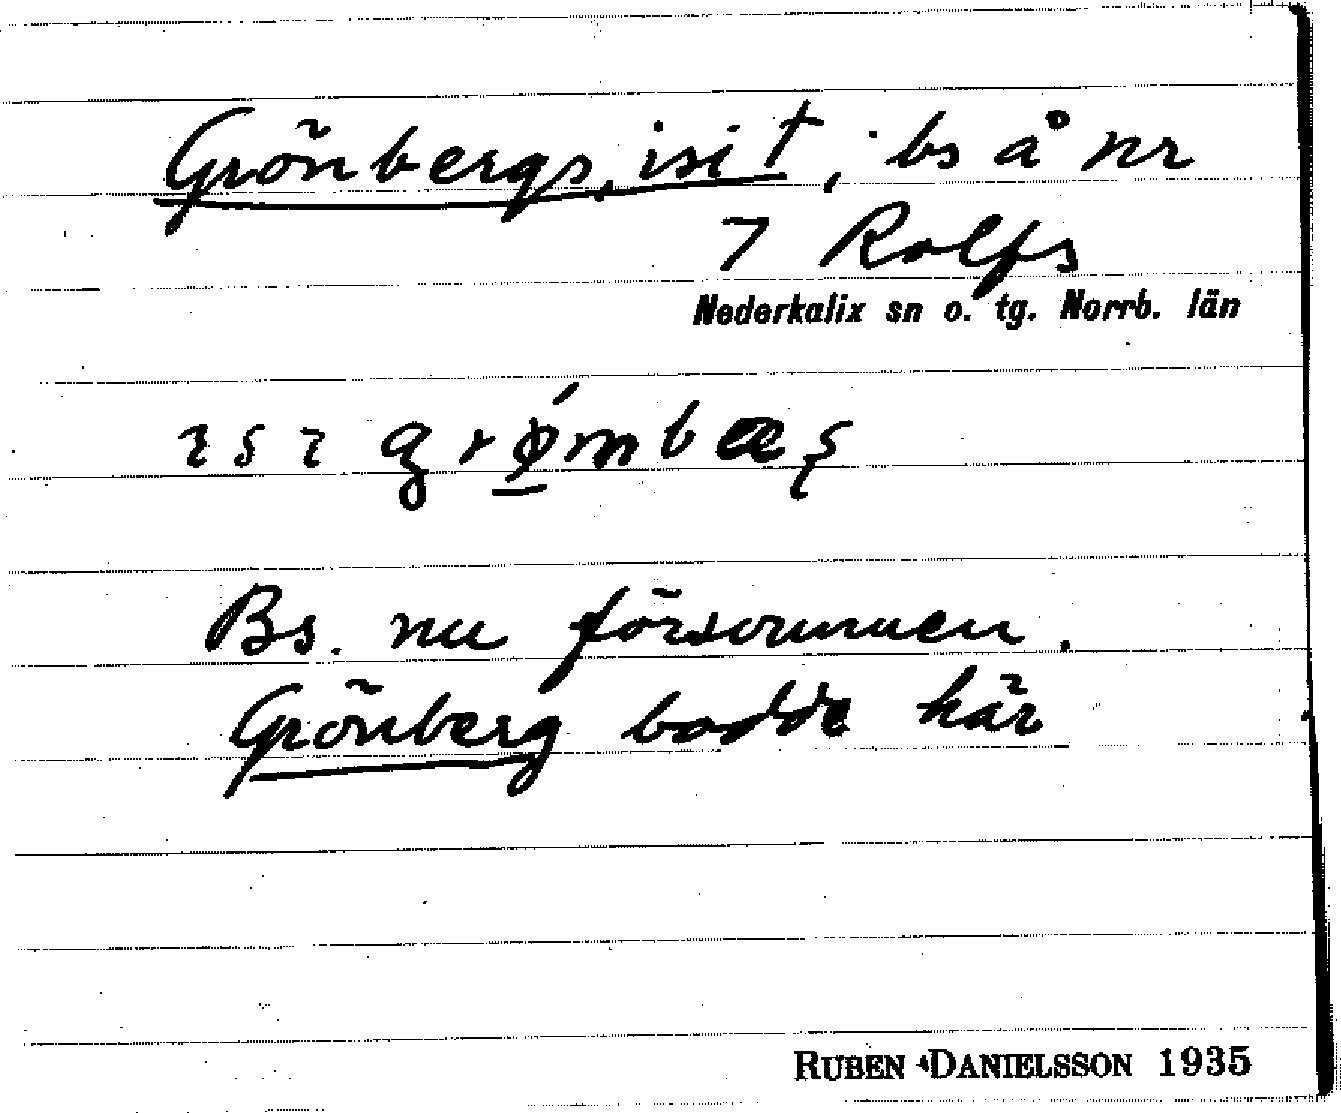 Grönbergs, isi †, bs å nr
7 Rolfs
Nederkalix sn o. tg. Norrb. län
Bs. nu försvunnen.
Grönberg bodde här
RUBEN DANIELSSON 1935